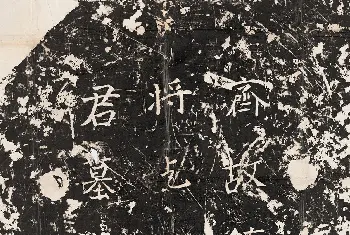 齊故
将乞
君墓